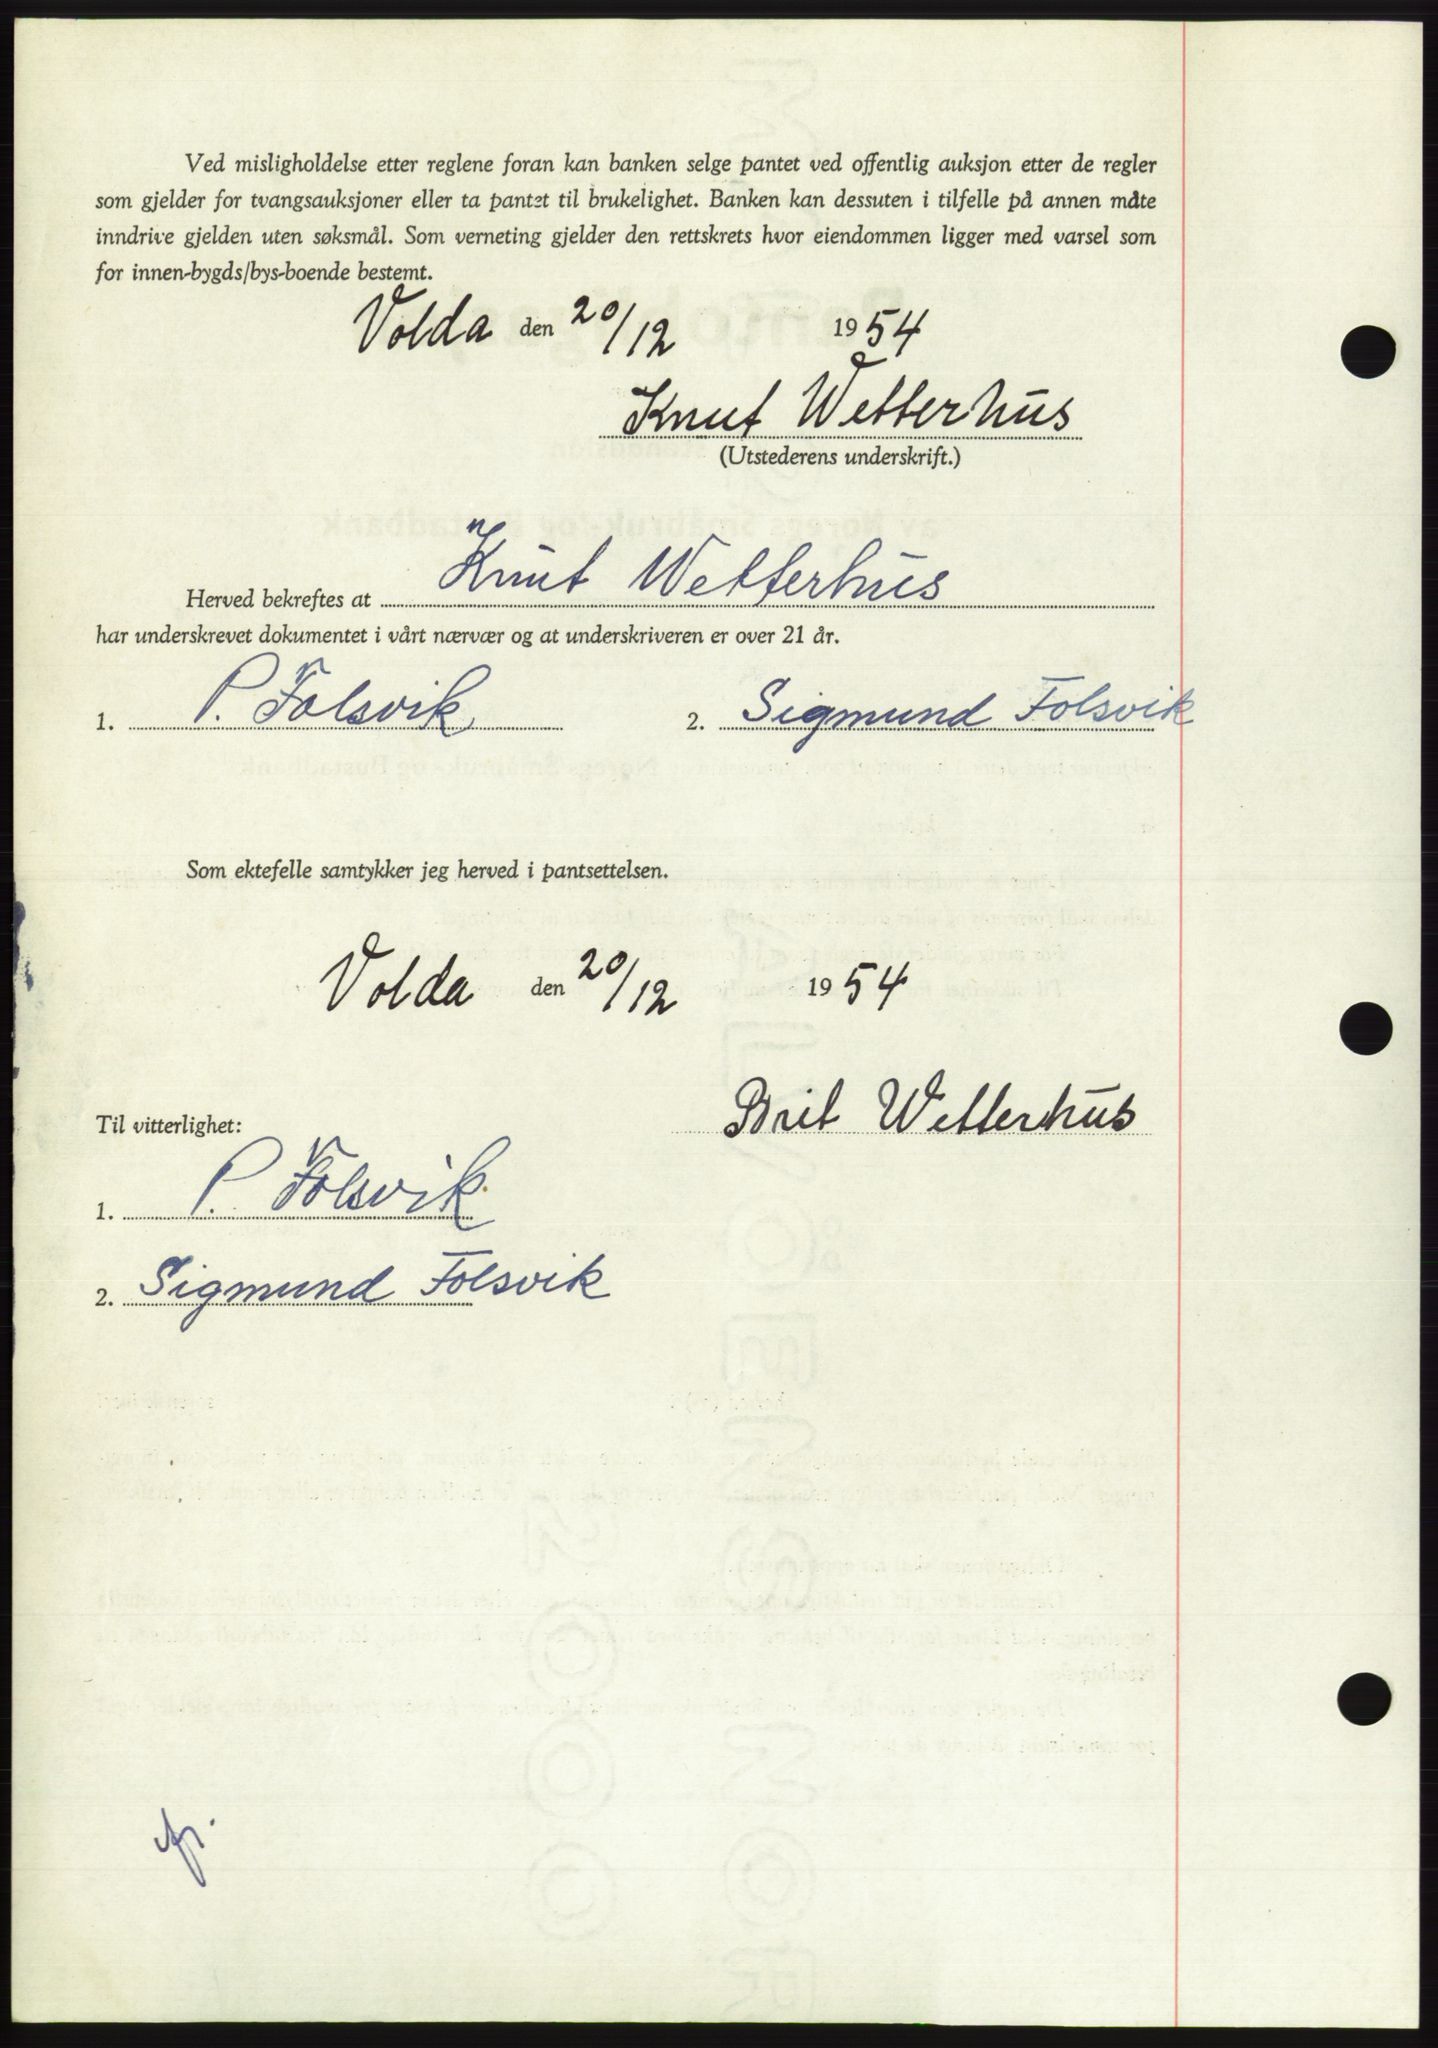 Ved misligholdelse etter reglene foran kan banken selge pantet ved offentlig auksjon etter de regler
som gjelder for tvangsauksjoner eller ta pantet til brukelighet. Banken kan dessuten i tilfelle på annen måte
inndrive gjelden uten søksmål. Som verneting gjelder den rettskrets hvor eiendommen ligger med varsel som
for innen-bygds/bys-boende bestemt.
Volda den 20/12 1954
Knut Wetterhus
(Utstederens underskrift.)
Herved bekreftes at Knut Wetterhus
har underskrevet dokumentet i vårt nærvær og at underskriveren er over 21 år.
1. P. Folsvik 2. Sigmund Folsvik
Som ektefelle samtykker jeg herved i pantsettelsen.
Volda den 20/12 1954
Brit Wetterhus
Til vitterlighet:
1. P. Folsvik
2. Sigmund Folsvik